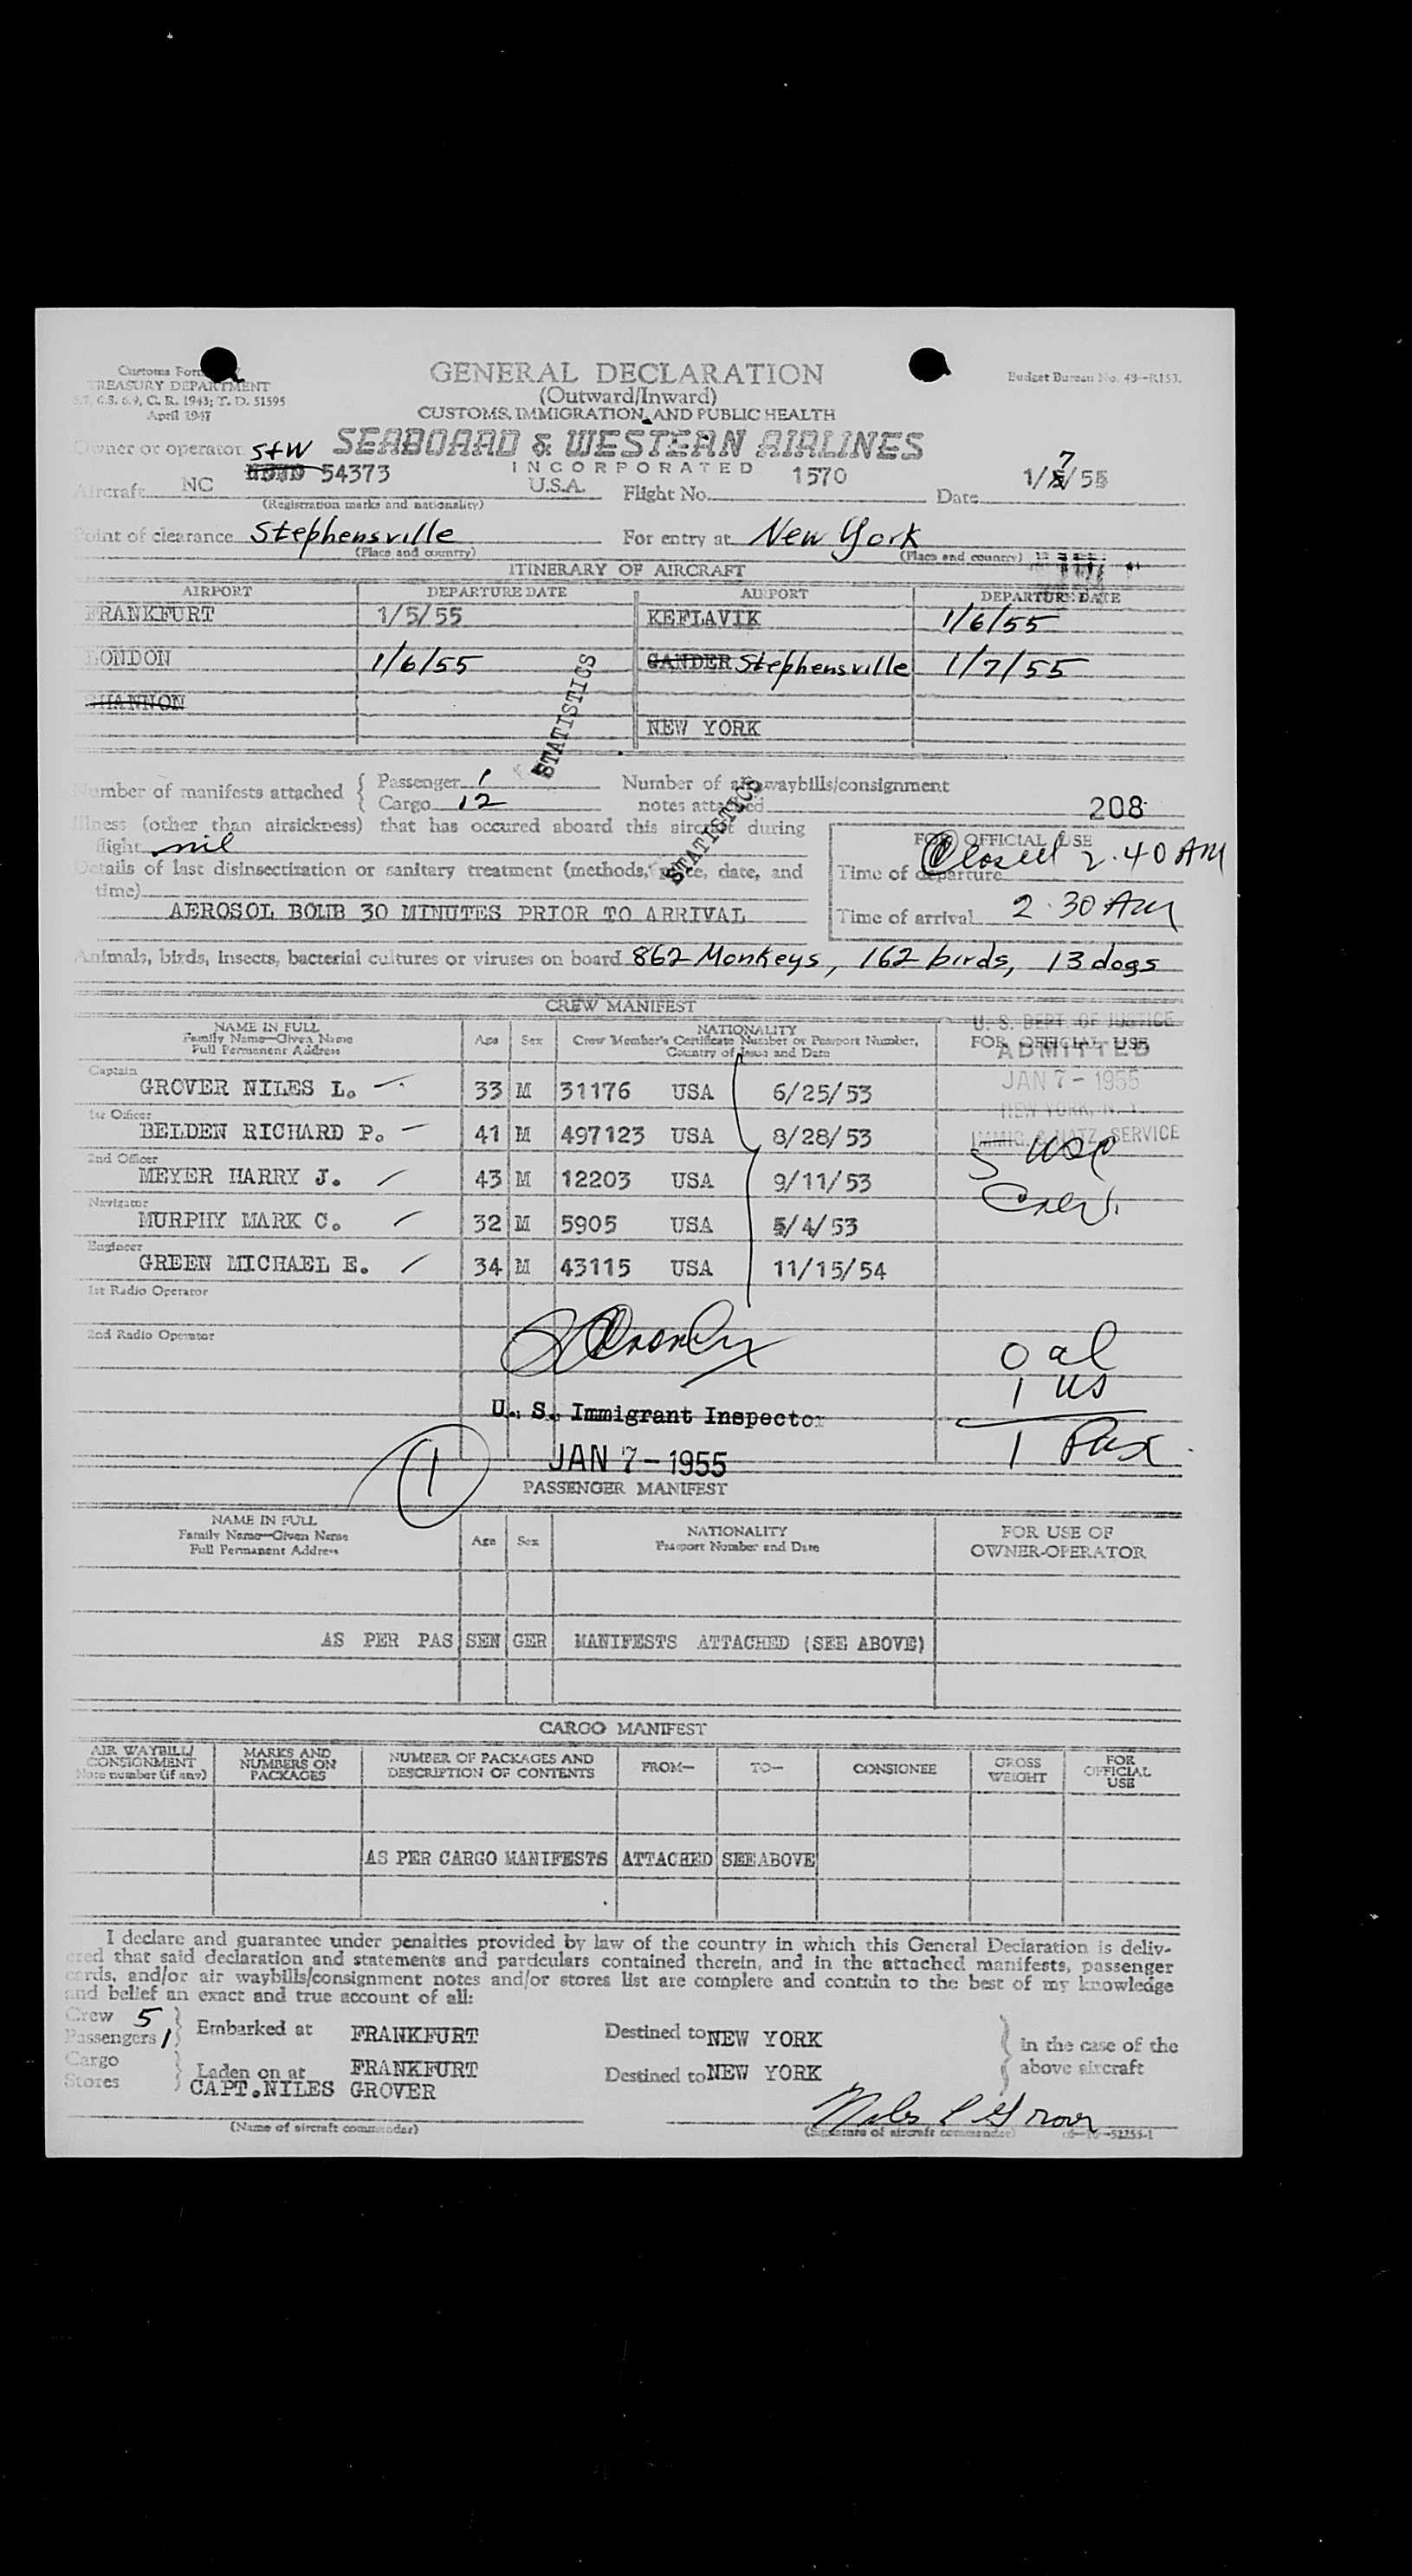 Customs Form
TREASURY DEPARTMENT
6.8, 6.9, C. R. 1943; T. D. 51595
April 1947
GENERAL DECLARATION
(Outward/Inward)
CUSTOMS, IMMIGRATION, AND PUBLIC HEALTH
Budget Bureau No. 48—R153.
Owner or operator S+W SEABOARD & WESTERN AIRLINES
INCORPORATED
Aircraft NC 54373 U.S.A. Flight No. 1570 Date 1/7/55
(Registration marks and nationality)
Point of clearance Stephensville For entry at New York
(Place and country) (Place and country)
ITINERARY OF AIRCRAFT
AIRPORT DEPARTURE DATE AIRPORT DEPARTURE DATE
FRANKFURT 1/5/55 KEFLAVIK 1/6/55
LONDON 1/6/55 GANDER Stephensville 1/7/55
SHANNON
NEW YORK
STATISTICS
STATISTICS
Number of manifests attached { Passenger 1
Cargo 12
Number of air waybills/consignment
notes attached 208
Illness (other than airsickness) that has occured aboard this aircraft during
flight nil
Details of last disinsectization or sanitary treatment (methods, place, date, and
time)
AEROSOL BOMB 30 MINUTES PRIOR TO ARRIVAL
FOR OFFICIAL USE
Closed 2.40 AM
Time of departure
Time of arrival 2.30 AM
Animals, birds, insects, bacterial cultures or viruses on board 862 Monkeys, 162 birds, 13 dogs
CREW MANIFEST
NAME IN FULL
Family Name—Given Name
Full Permanent Address
Age Sex
NATIONALITY
Crew Member's Certificate Number or Passport Number,
Country of Issue and Date
FOR OFFICIAL USE
U. S. DEPT. OF JUSTICE
ADMITTED
JAN 7 - 1955
NEW YORK, N. Y.
IMMIG. & NATZ. SERVICE
Captain
GROVER NILES L. 33 M 31176 USA 6/25/53
1st Officer
BELDEN RICHARD P. 41 M 497123 USA 8/28/53
2nd Officer
MEYER HARRY J. 43 M 12203 USA 9/11/53
Navigator
MURPHY MARK C. 32 M 5905 USA 5/4/53
Engineer
GREEN MICHAEL E. 34 M 43115 USA 11/15/54
1st Radio Operator
2nd Radio Operator
5 USC
Crew.
0 al
1 US
1 Pax.
U. S. Immigrant Inspector
JAN 7 - 1955
1
PASSENGER MANIFEST
NAME IN FULL
Family Name—Given Name
Full Permanent Address
Age Sex
NATIONALITY
Passport Number and Date
FOR USE OF
OWNER-OPERATOR
AS PER PASSENGER MANIFESTS ATTACHED (SEE ABOVE)
CARGO MANIFEST
AIR WAYBILL/
CONSIGNMENT
Note number (if any)
MARKS AND
NUMBERS ON
PACKAGES
NUMBER OF PACKAGES AND
DESCRIPTION OF CONTENTS
FROM— TO— CONSIGNEE
GROSS
WEIGHT
FOR
OFFICIAL
USE
AS PER CARGO MANIFESTS ATTACHED SEE ABOVE
I declare and guarantee under penalties provided by law of the country in which this General Declaration is deliv-
ered that said declaration and statements and particulars contained therein, and in the attached manifests, passenger
cards, and/or air waybills/consignment notes and/or stores list are complete and contain to the best of my knowledge
and belief an exact and true account of all:
Crew 5
Passengers 1 } Embarked at FRANKFURT Destined to NEW YORK
Cargo
Stores } Laden on at FRANKFURT Destined to NEW YORK
} in the case of the
above aircraft
CAPT. NILES GROVER
Niles L Grover
(Name of aircraft commander) (Signature of aircraft commander)